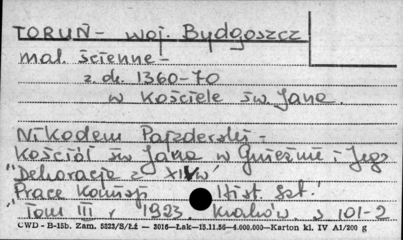 TORUŃ - woj. Bydgoszcz
mal. ścienne -
z. ok. 1360-70
w Kościele św Jana.
Nikodem Pajzderski -
Kościół św Jana w Gnieźnie i Jego
"Dekoracje z XIVw"
Prace Komisji Hist. Szt.
"Tom III, 1923. Kraków. s 101-2
CWD - B-15b. Zam. 5823/S/Łż — 3016—Łak—15.11.56—4.000.000—Karton kl. IV A1/200 g